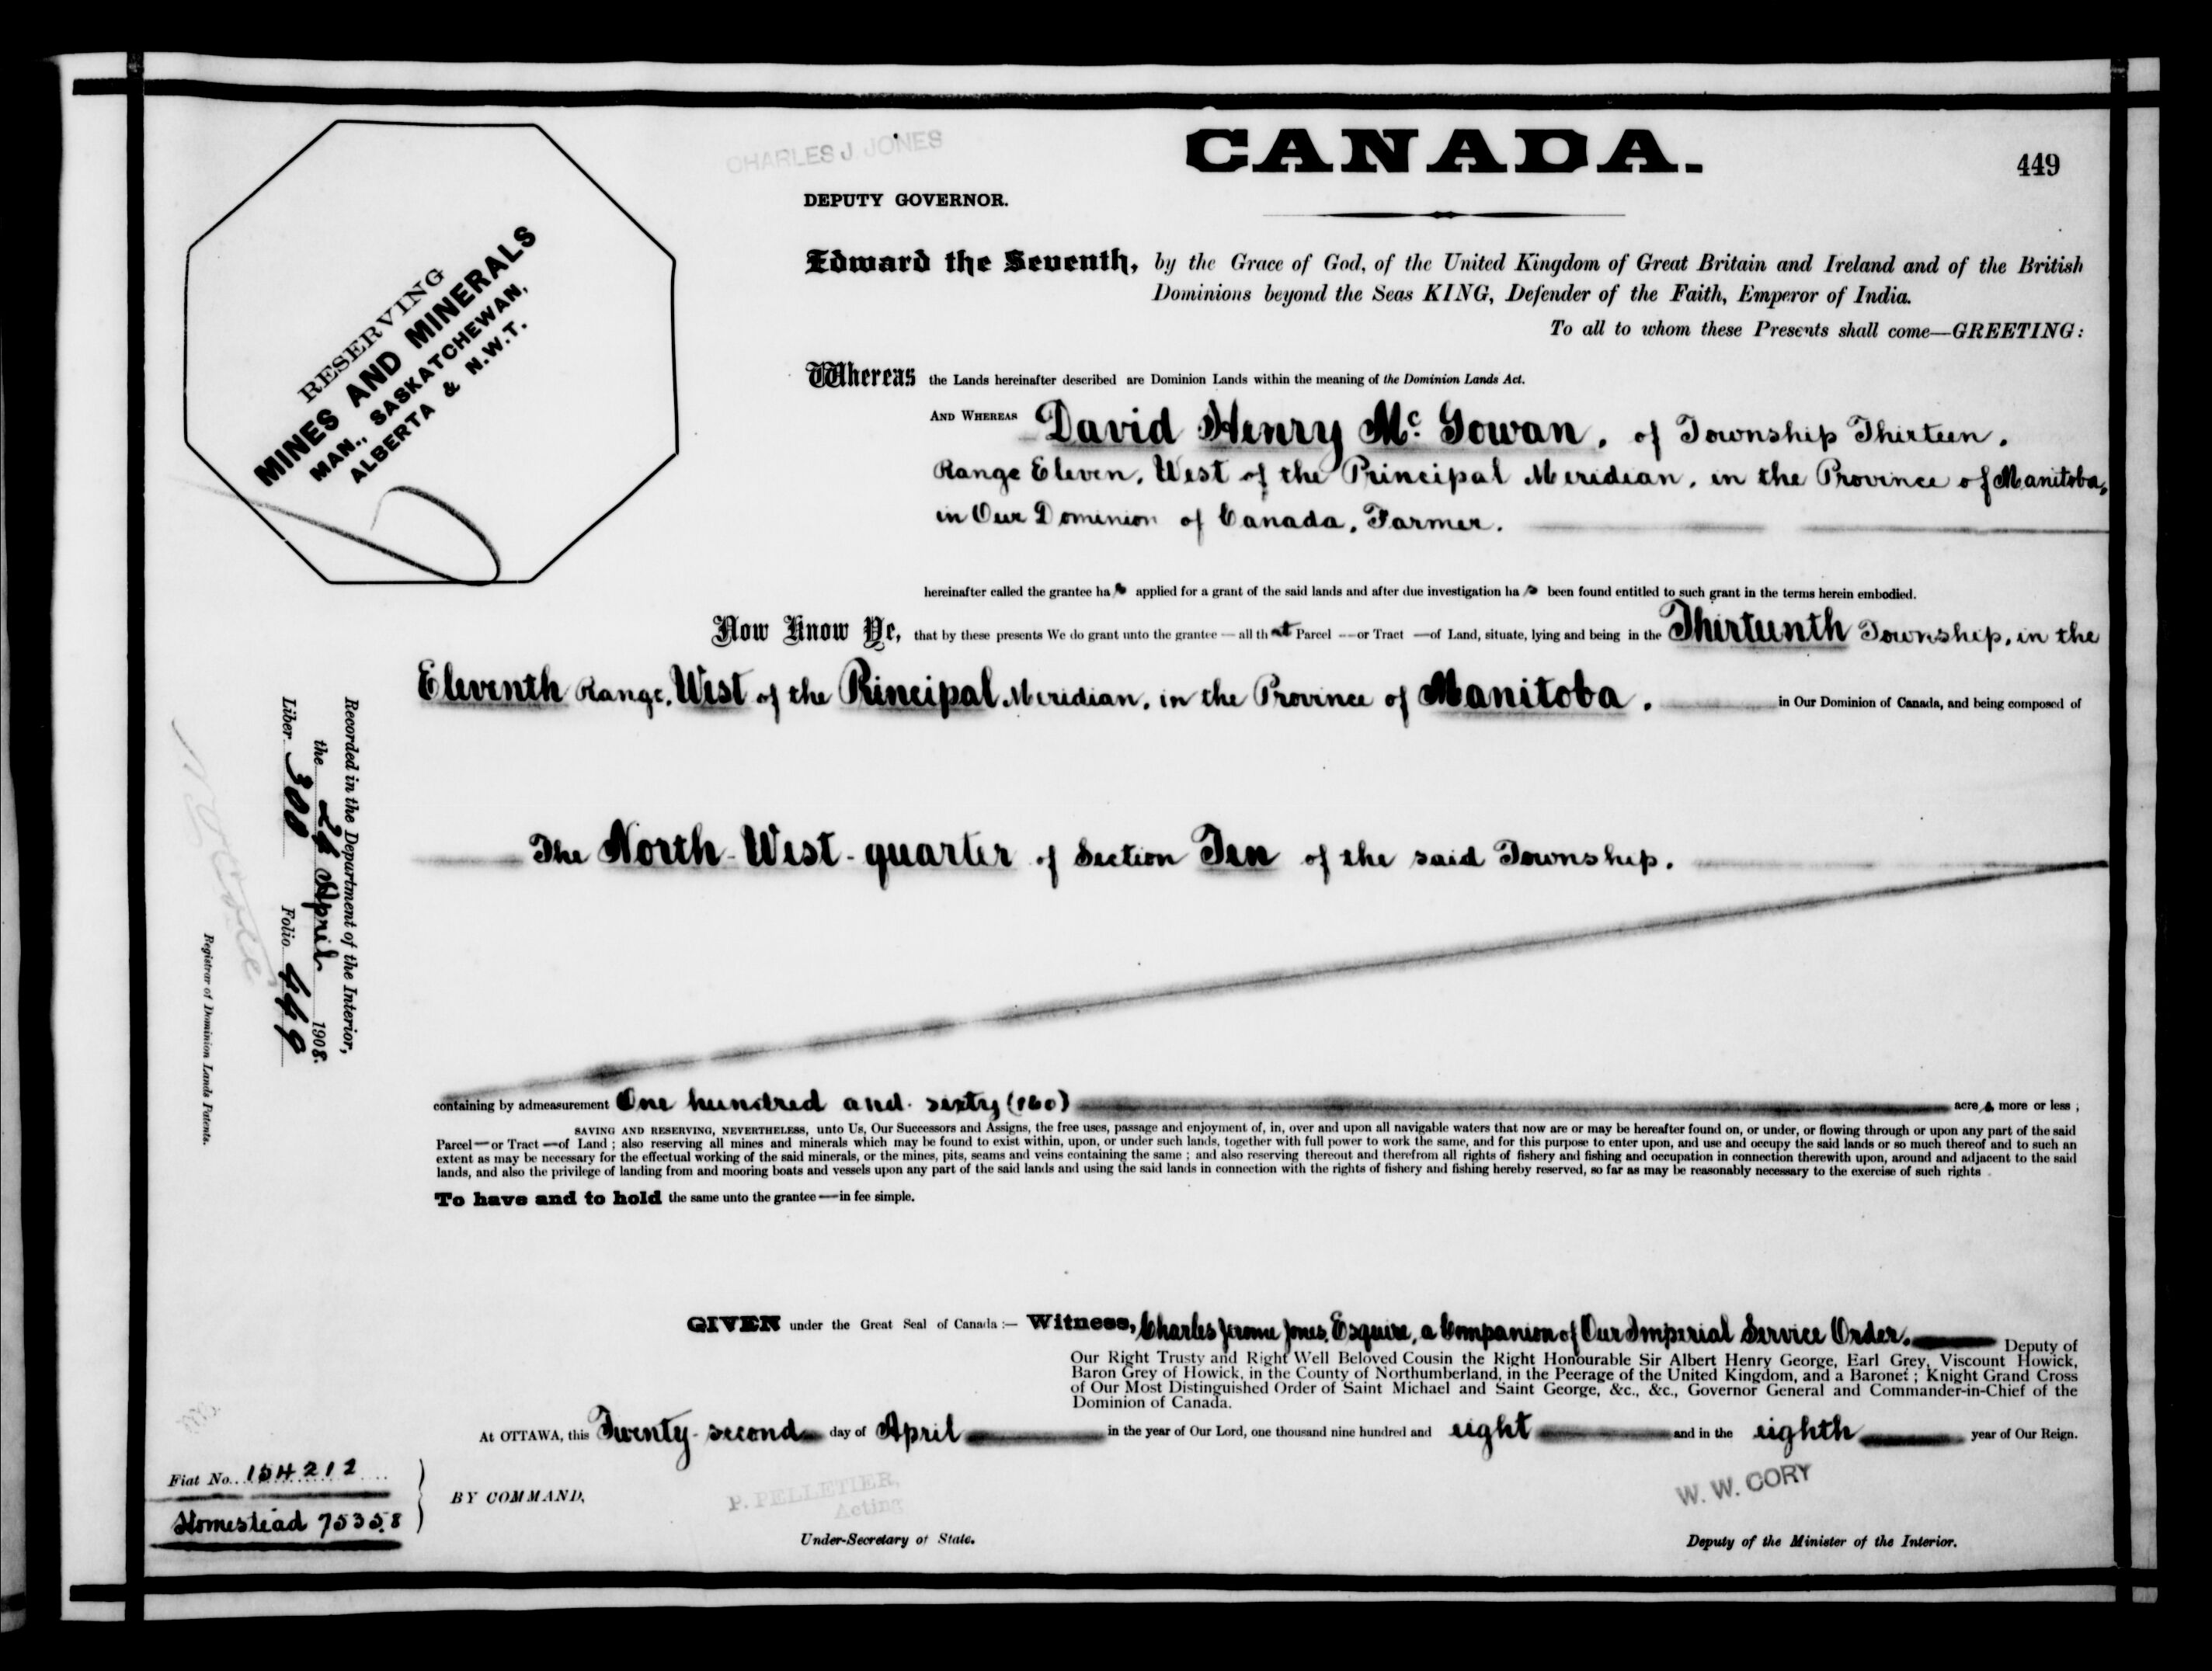 CHARLES J. JONES
CANADA.
449
DEPUTY GOVERNOR.
RESERVING
MINES AND MINERALS
MAN., SASKATCHEWAN,
ALBERTA & N.W.T.
Edward the Seventh, by the Grace of God, of the United Kingdom of Great Britain and Ireland and of the British
Dominions beyond the Seas KING, Defender of the Faith, Emperor of India.
To all to whom these Presents shall come—GREETING:
Whereas the Lands hereinafter described are Dominion Lands within the meaning of the Dominion Lands Act.
AND WHEREAS David Henry Mc Gowan, of Township Thirteen,
Range Eleven, West of the Principal Meridian, in the Province of Manitoba,
in Our Dominion of Canada, Farmer.
hereinafter called the grantee has applied for a grant of the said lands and after due investigation has been found entitled to such grant in the terms herein embodied.
Now Know Ye, that by these presents We do grant unto the grantee — all that Parcel — or Tract — of Land, situate, lying and being in the Thirteenth Township, in the
Eleventh Range, West of the Principal Meridian, in the Province of Manitoba, in Our Dominion of Canada, and being composed of
The North-West-quarter of Section Ten of the said Township.
Recorded in the Department of the Interior,
the 24 April 1908.
Liber 300 Folio 449
Registrar of Dominion Lands Patents.
containing by admeasurement One hundred and sixty (160) acres, more or less;
SAVING AND RESERVING, NEVERTHELESS, unto Us, Our Successors and Assigns, the free uses, passage and enjoyment of, in, over and upon all navigable waters that now are or may be hereafter found on, or under, or flowing through or upon any part of the said
Parcel — or Tract — of Land; also reserving all mines and minerals which may be found to exist within, upon, or under such lands, together with full power to work the same, and for this purpose to enter upon, and use and occupy the said lands or so much thereof and to such an
extent as may be necessary for the effectual working of the said minerals, or the mines, pits, seams and veins containing the same; and also reserving thereout and therefrom all rights of fishery and fishing and occupation in connection therewith upon, around and adjacent to the said
lands, and also the privilege of landing from and mooring boats and vessels upon any part of the said lands and using the said lands in connection with the rights of fishery and fishing hereby reserved, so far as may be reasonably necessary to the exercise of such rights
To have and to hold the same unto the grantee — in fee simple.
GIVEN under the Great Seal of Canada:— Witness, Charles Jerome Jones, Esquire, a Companion of Our Imperial Service Order. Deputy of
Our Right Trusty and Right Well Beloved Cousin the Right Honourable Sir Albert Henry George, Earl Grey, Viscount Howick,
Baron Grey of Howick, in the County of Northumberland, in the Peerage of the United Kingdom, and a Baronet; Knight Grand Cross
of Our Most Distinguished Order of Saint Michael and Saint George, &c., &c., Governor General and Commander-in-Chief of the
Dominion of Canada.
At OTTAWA, this Twenty-second day of April in the year of Our Lord, one thousand nine hundred and eight and in the eighth year of Our Reign.
Fiat No. 154212
Homestead 75358
BY COMMAND,
P. PELLETIER,
Acting
Under-Secretary of State.
W. W. CORY
Deputy of the Minister of the Interior.